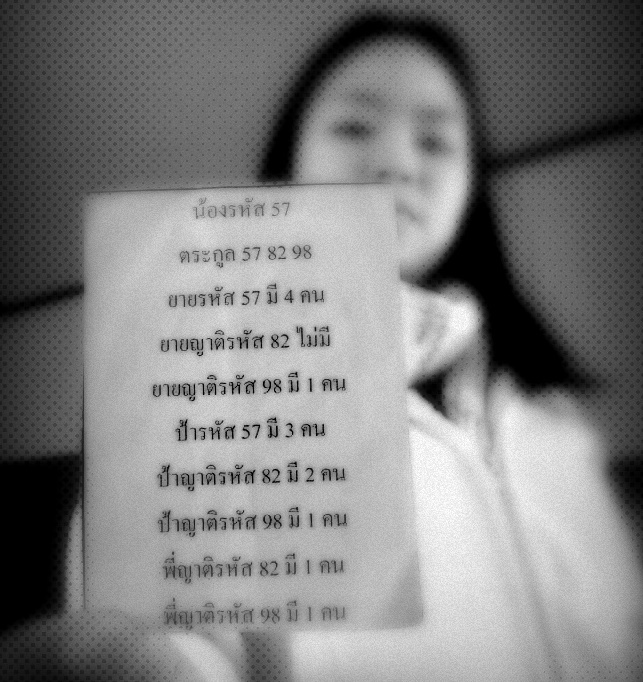 น้องรหัส 57
ตระกูล 57 82 98
ยายรหัส 57 มี 4 คน
ยายญาติรหัส 82 ไม่มี
ยายญาติรหัส 98 มี 1 คน
ป้ารหัส 57 มี 3 คน
ป้าญาติรหัส 82 มี 2 คน
ป้าญาติรหัส 98 มี 1 คน
พี่ญาติรหัส 82 มี 1 คน
พี่ญาติรหัส 98 มี 1 คน